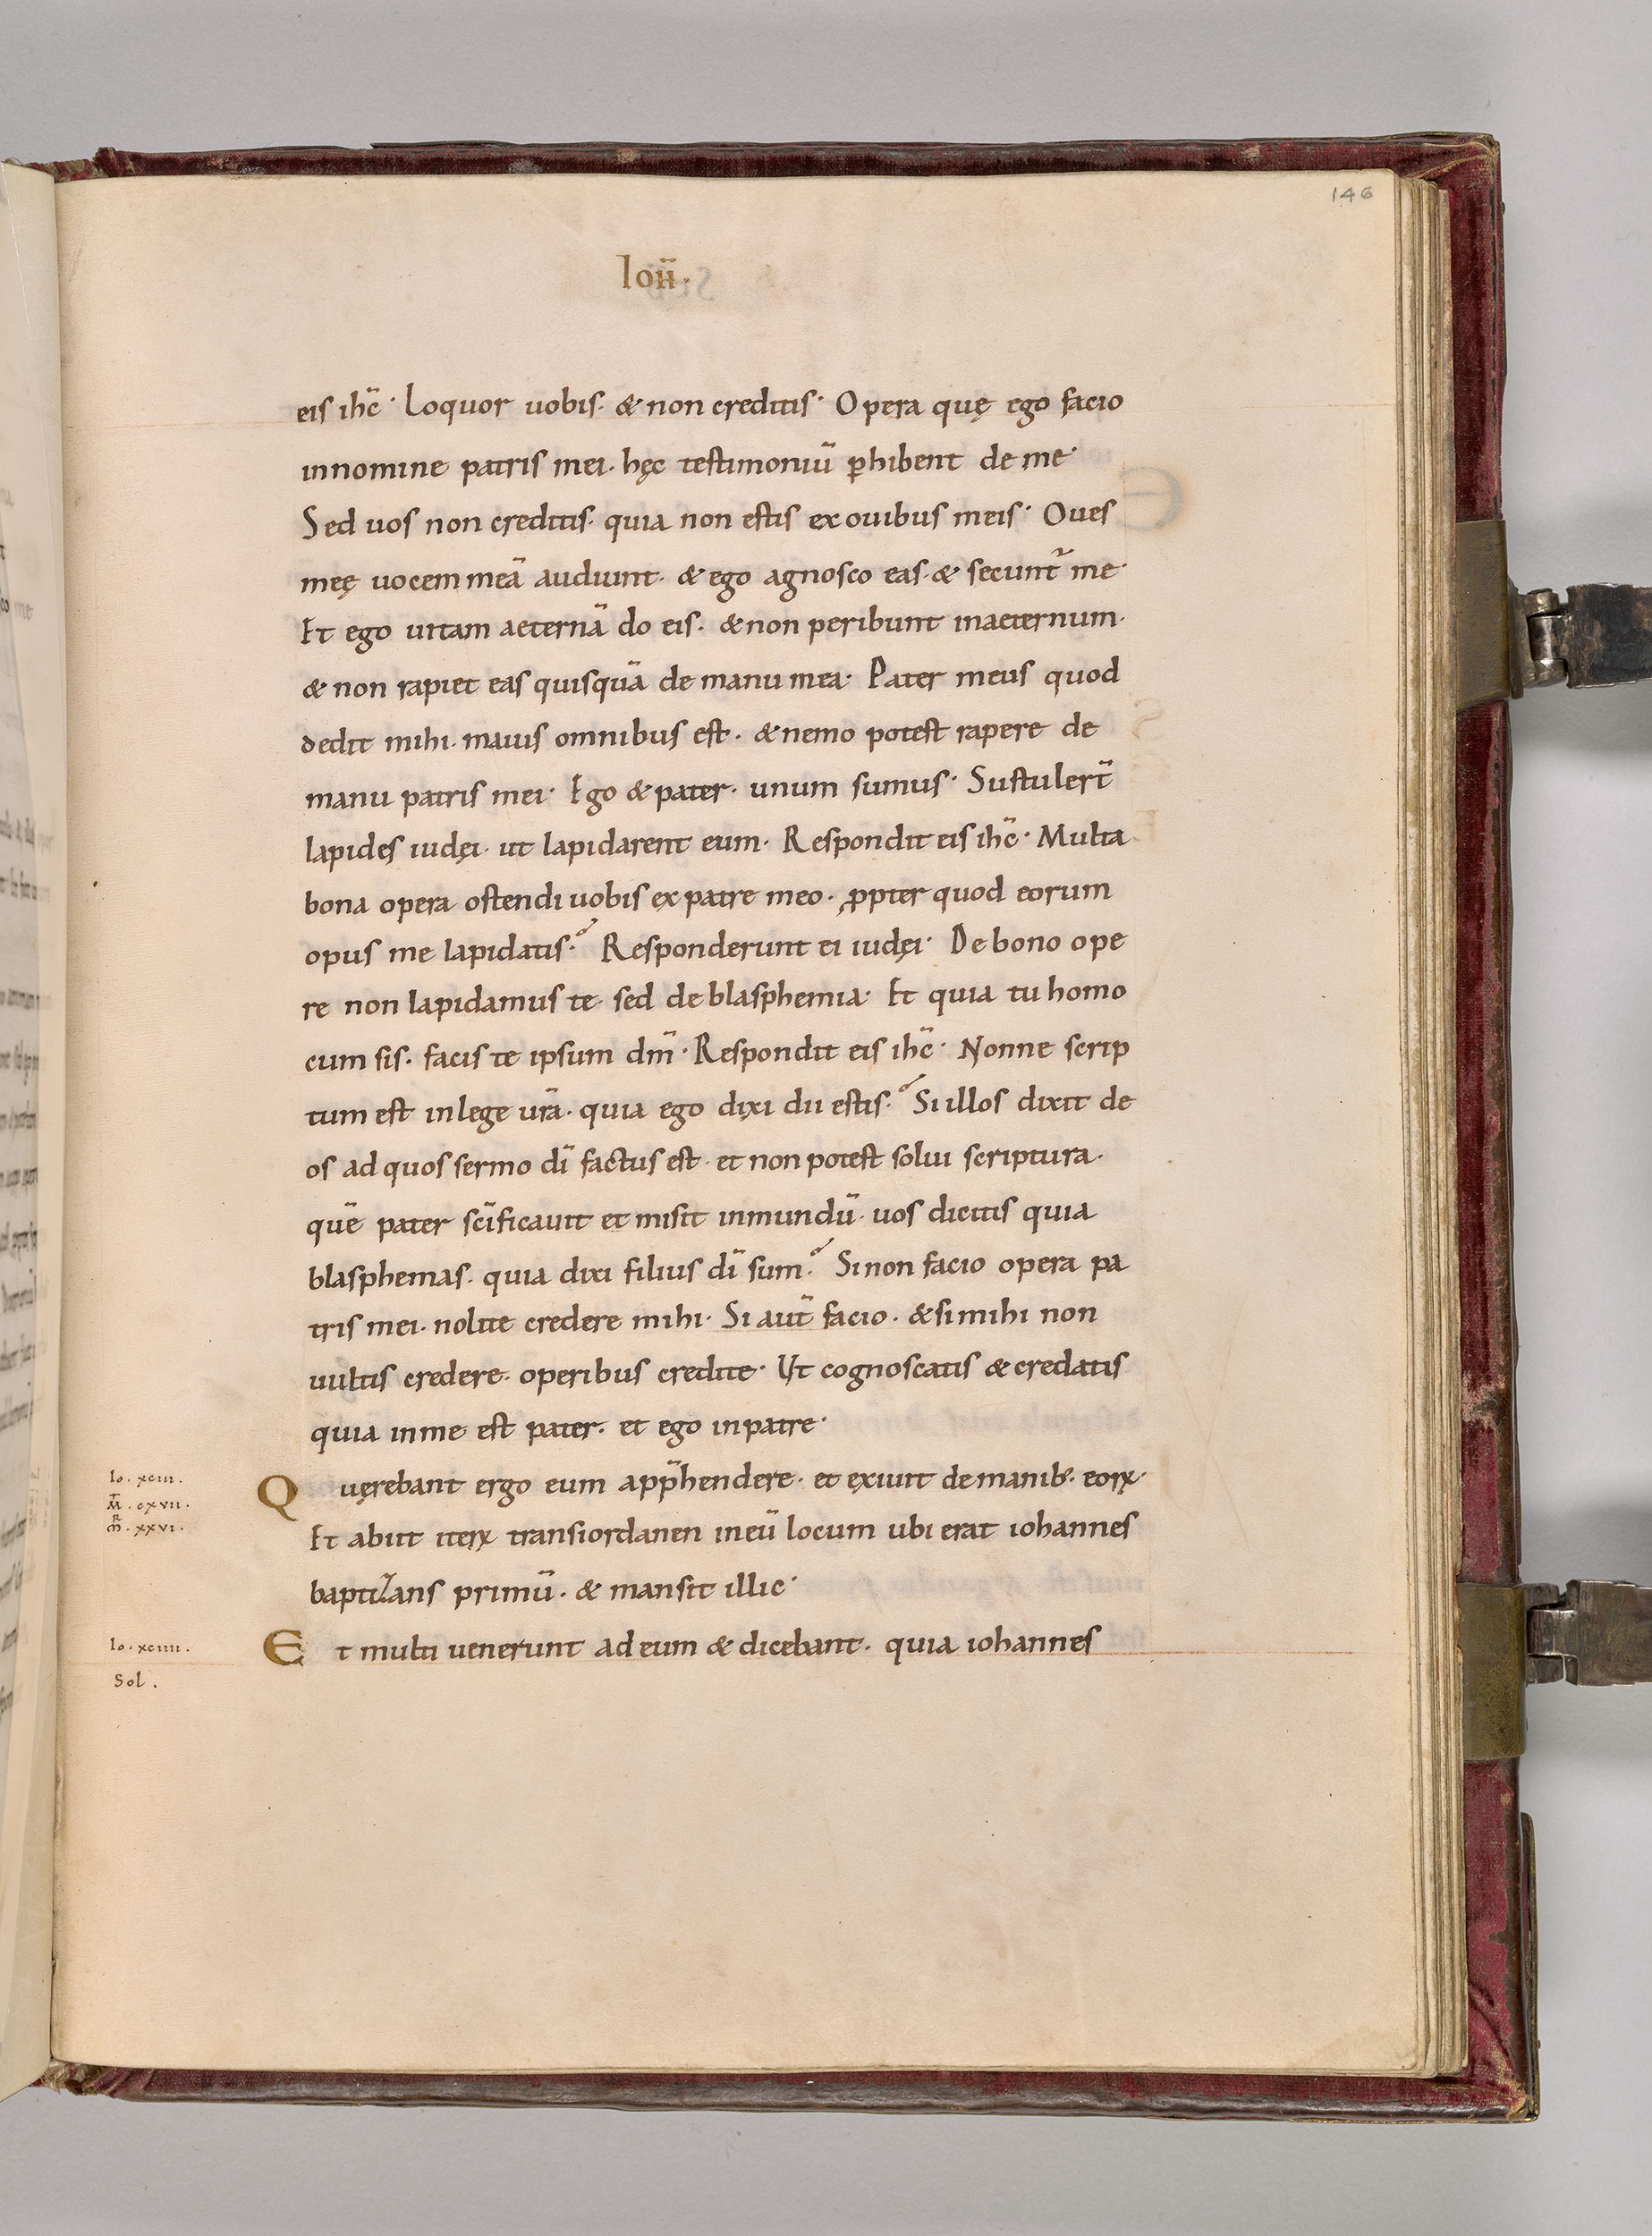 146
Ioħ.
eis ihc̄· Loquor uobis· & non creditis· Opera quę ego facio
innomine patris mei· hęc testimoniū ꝑhibent de me·
Sed uos non creditis· quia non estis ex ouibus meis· Oues
meę uocem meā audiunt· & ego agnosco eas· & secunt᷑ me·
Et ego uitam aeternā do eis· & non peribunt inaeternum·
& non rapiet eas quisquā de manu mea· Pater meus quod
dedit mihi· maius omnibus est· & nemo potest rapere de
manu patris mei· Ego & pater· unum sumus· Sustulert̄
lapides iudęi· ut lapidarent eum· Respondit eis ihc̄· Multa
bona opera ostendi uobis ex patre meo· ꝓpter quod eorum
opus me lapidatis? Responderunt ei iudęi· De bono ope
re non lapidamus te· sed de blasphemia· Et quia tu homo
cum sis· facis te ipsum dm̄· Respondit eis ihc̄· Nonne scrip
tum est inlege urā· quia ego dixi dii estis? Si illos dixit de
os ad quos sermo dī factus est· et non potest solui scriptura·
quē pater scīficauit et misit inmundū· uos dicitis quia
blasphemas· quia dixi filius dī sum? Si non facio opera pa
tris mei· nolite credere mihi· Si aut̄ facio· & si mihi non
uultis credere· operibus credite· Ut cognoscatis & credatis
quia inme est pater· et ego inpatre·
Io· xciii·
M̄T· cxvii·
m̄R· xxvi·
Quęrebant ergo eum app̄hendere· et exiuit de manib;· eoꝝ·
Et abiit iteꝝ transiordanen ineū locum ubi erat iohannes
baptizans primū· & mansit illic·
Io· xciiii·
Et multi uenerunt ad eum & dicebant· quia iohannes
Sol·